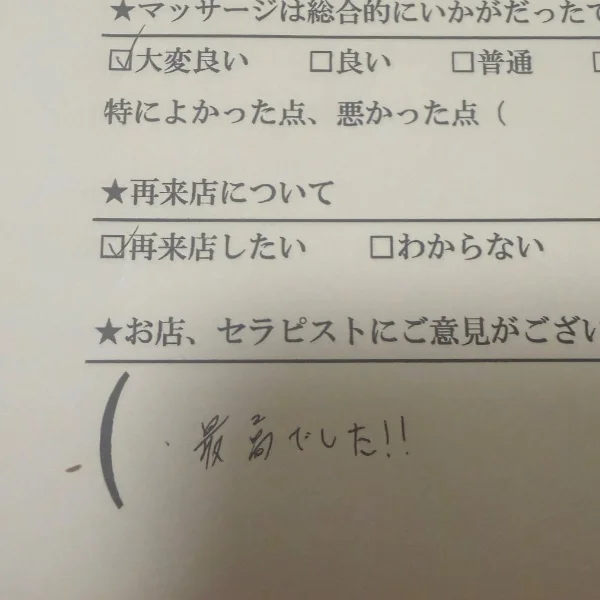 ★マッサージは総合的にいかがだったで
☑大変良い □良い □普通 □
特によかった点、悪かった点（
★再来店について
☑再来店したい □わからない
★お店、セラピストにご意見がござい
（ ・最高でした!!